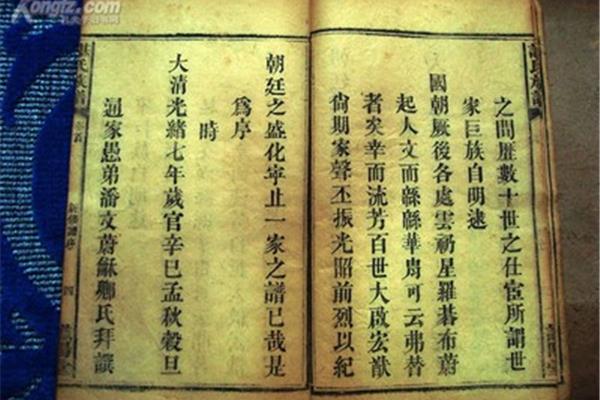 之間歷數十世之仕宦所謂世
家巨族自明逮
國朝厥後各處雲礽星羅碁布蔚
起人文而緜緜華胄可云弗替
者矣幸而流芳百世大啟宏猷
尙期家聲丕振光昭前烈以紀
朝廷之盛化寧止一家之譜已哉是
爲序
時
大清光緒七年歲官辛巳孟秋穀旦
通家愚弟潘文蔚穌卿氏拜譔
氏族譜
四
Kongfz.com
孔夫子旧书网